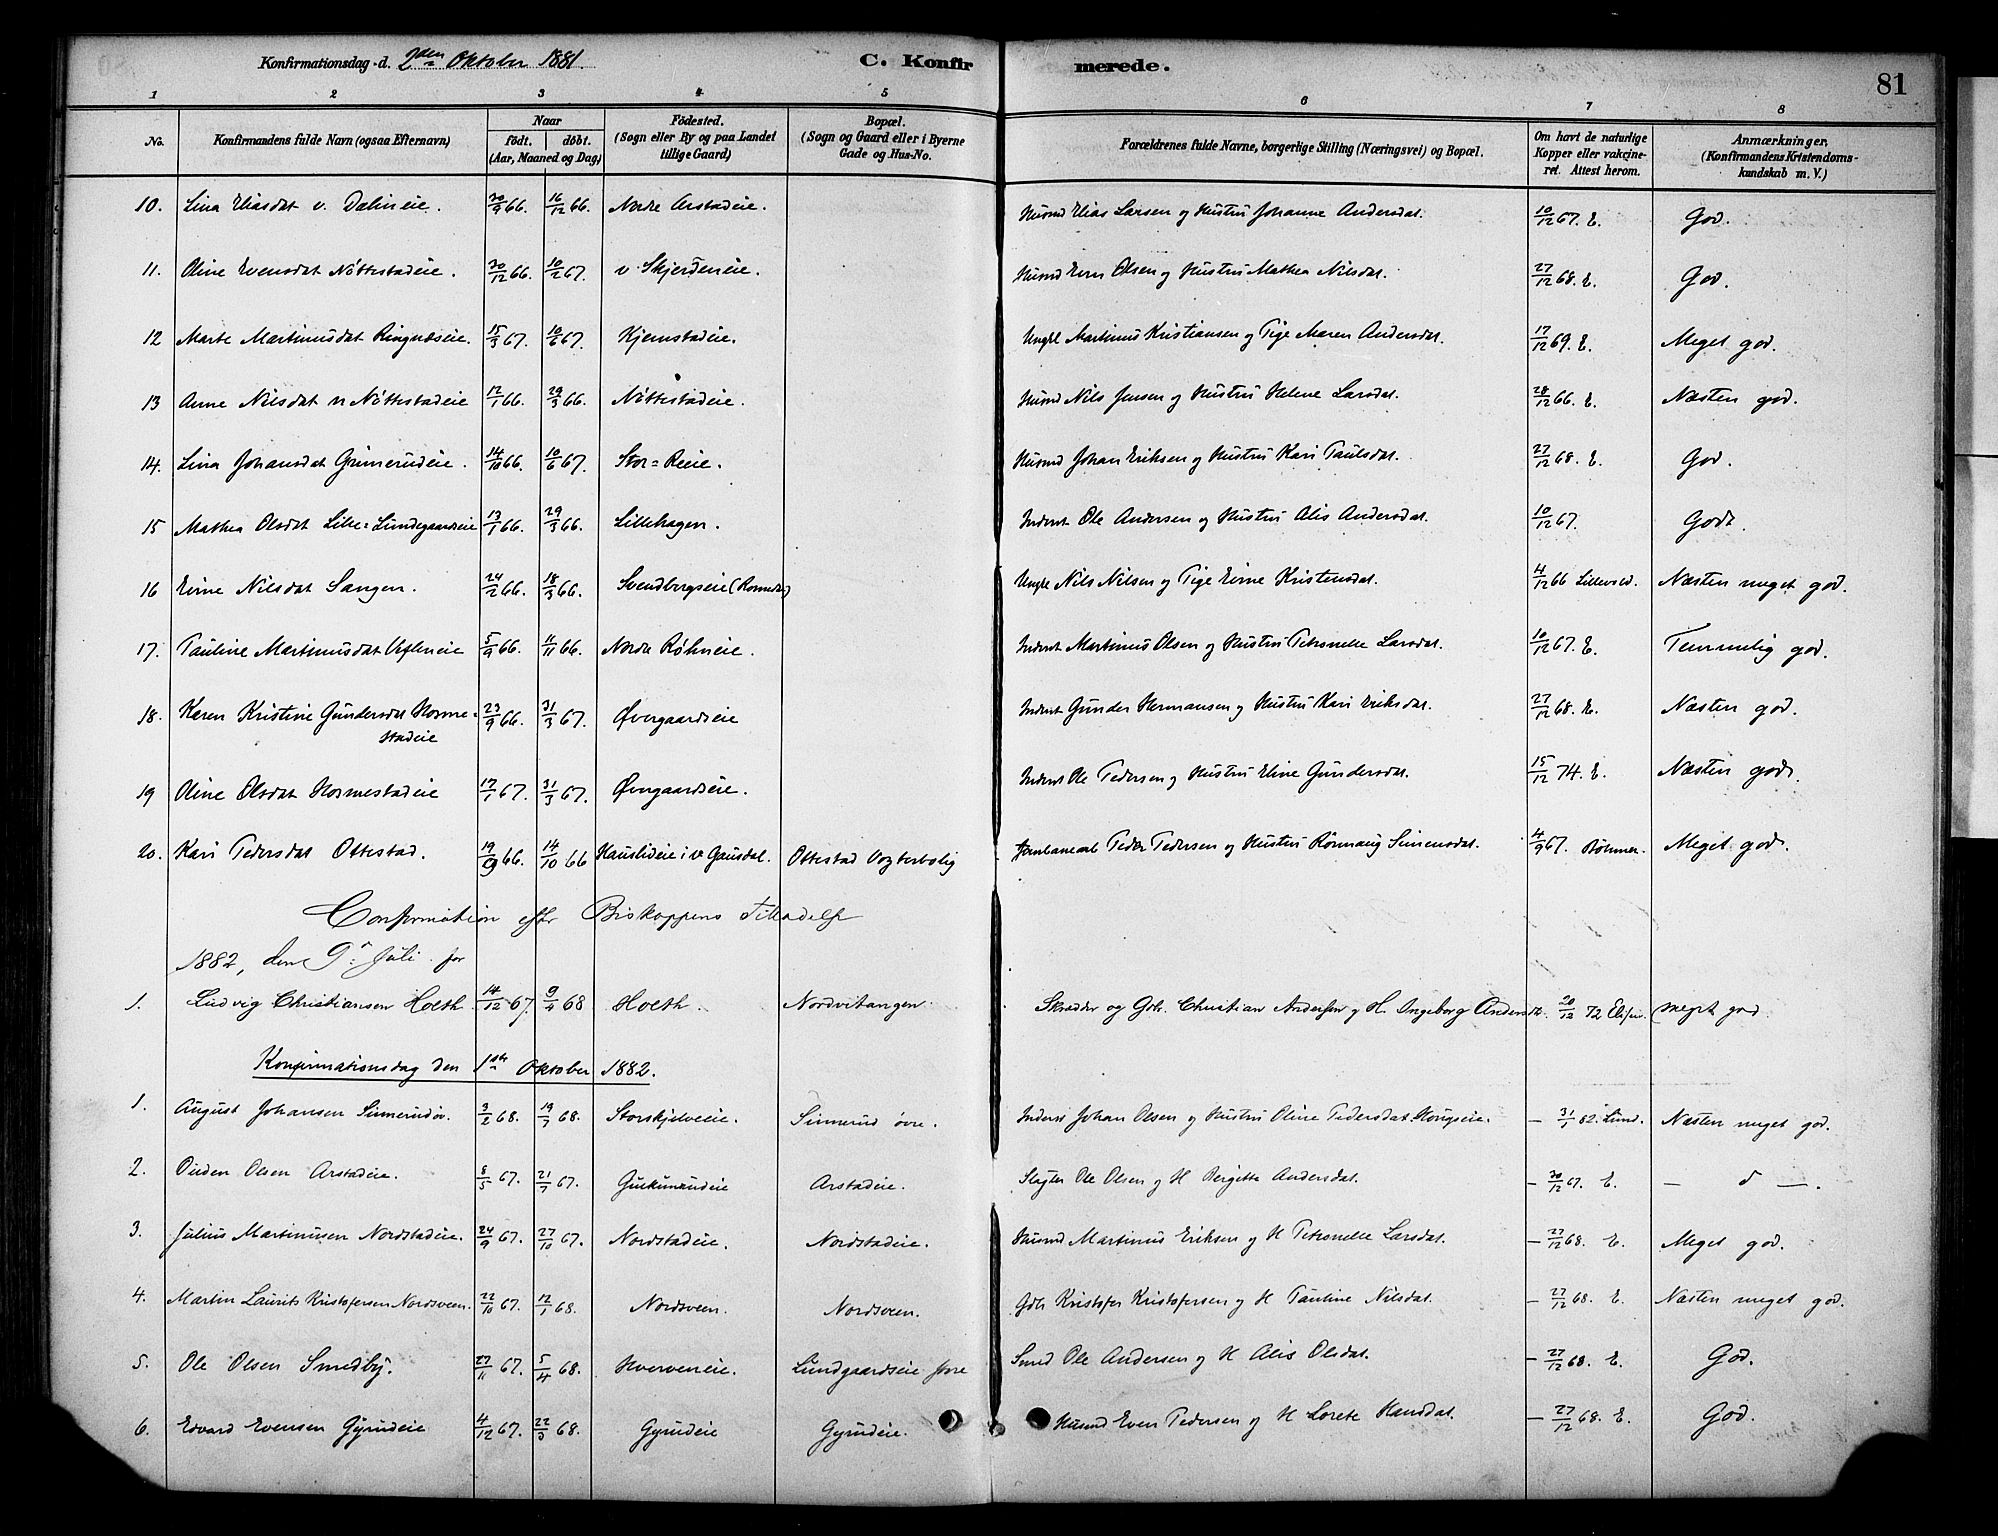 Konfirmationsdag d. 2den Oktober 1881. C. Konfirmerede. 81
1 2 3 4 5 6 7 8
No. Konfirmandens fulde Navn (ogsaa Efternavn) Naar født. døbt. (Aar, Maaned og Dag) Fødested. (Sogn eller By og paa Landet tillige Gaard) Bopæl. (Sogn og Gaard eller i Byerne Gade og Hus-No. Forældrenes fulde Navne, borgerlige Stilling (Næringsvei) og Bopæl. Om havt de naturlige Kopper eller vakcineret. Attest herom. Anmærkninger. (Konfirmandens Kristendomskundskab m. V.)
10. Lina Eliasdat v. Dælineie. 30/9 66. 16/12 66. Nordre Arstadeie. Husmd Elias Larsen og Hustru Johanne Andersdat. 10/12 67. E. God.
11. Oline Evensdat Nöttestadeie. 30/12 66. 10/2 67. v. Skjerdeneie. Husmd Even Olsen og Hustru Mathea Nilsdat. 27/12 68. E. God.
12 Marte Martinusdat Ringneseie. 15/3 67. 10/6 67. Kjemstadeie. Ungkl Martinus Kristiansen og Pige Maren Andersdat. 17/12 69. E. Meget god.
13 Anne Nilsdat n Nöttestadeie 12/1 66. 29/3 66. Nöttestadeie. Husmd Nils Jensen og Hustru Helene Larsdat. 28/12 66. E. Næsten god.
14. Lina Johansdat Grimerudeie. 14/10 66. 10/6 67. Stor=Reeie. Husmd Johan Eriksen og Hustru Kari Paulsdat. 27/12 68. E. God.
15 Mathea Olsdat Lille=Lundegaardseie 13/1 66. 29/3 66. Lillehagen. Inderst Ole Andersen og Hustru Alis Andersdat. 10/12 67. Godt.
16 Eline Nilsdat Sangen. 24/2 66. 18/3 66. Svendbergseie (Romedal) Ungkl Nils Nilsen og Pige Eline Kristensdat. 4/12 66 Lillevold. Næsten meget god.
17. Pauline Martinusdat Vifleneie 5/9 66. 11/11 66. Nordre Røhneie. Inderst Martinus Olsen og Hustru Petronelle Larsdat. 10/12 67. E. Temmelig god.
18. Karen Kristine Gundersdat Horme= 23/9 66. 31/3 67. Øvergaardseie Inderst Gunder Hermansen og Hustru Kari Eriksdat. 27/12 68. E. Næsten god.
stadeie
19 Oline Olsdat Hormestadeie 17/1 67. 31/3 67. Øvergaardseie. Inderst Ole Pedersen og Hustru Eline Gundersdat. 15/12 74. E. Næsten god.
20. Kari Pedersdat Ottestad. 19/9 66. 14/10 66 Hauslideie i v Gausdal. Ottestad Vogterbolig Jernbanearb Peder Pedersen og Hustru Rönnaug Simensdat. 4/9 67. Böhmer. Meget god.
Confirmation efter Biskoppens Tilladelse
1882, den 9de Juli for
1. Ludvig Christiansen Hoeth. 14/12 67. 9/4 68 Hoeth. Nordvitangen. Skrædder og Gbr. Christian Andersen og H. Ingeborg Andersdt. 20/12 72 meget god.
Konfirmationsdag den 1ste Oktober 1882.
1. August Johansen Sinnerudøv. 3/2 68. 19/3 68. Storskjelveeie. Sinnerud øvre. Inderst Johan Olsen og Hustru Oline Pedersdat. – 31/1 82. Lund. Næsten meget god.
2. Olsen Arstadeie. 8/5 67. 21/7 67. Arstadeie. Slagter Ole Olsen og H Birgitte Andersdat. – 30/12 67. E. – d –.
3. Julius Martinusen Nordstadeie. 24/9 67. 27/10 67. Nordstadeie. Nordstadeie. Husmd Martinus Eriksen og H Petronelle Larsdat. – 27/12 68. E. Meget god.
4. Martin Laurits Kristofersen Nordsveen. 22/10 67. 12/1 68. Nordsveen. Nordsveen. Gbr Kristofer Kristofersen og H Pauline Nilsdat. – 27/12 68. E. Næsten meget god.
5. Ole Olsen Smedby. 27/11 67. 5/4 68. Hverveneie. Lundgaardseie store Smed Ole Andersen og H Alis Olsdat. – 27/12 68. E. God.
6. Edvard Evensen Gyrudeie 4/12 67. 22/3 68. Gyrudeie Gyrudeie. Husmd Even Pedersen og H Lorete Hansdat. – 27/12 68. E. God.